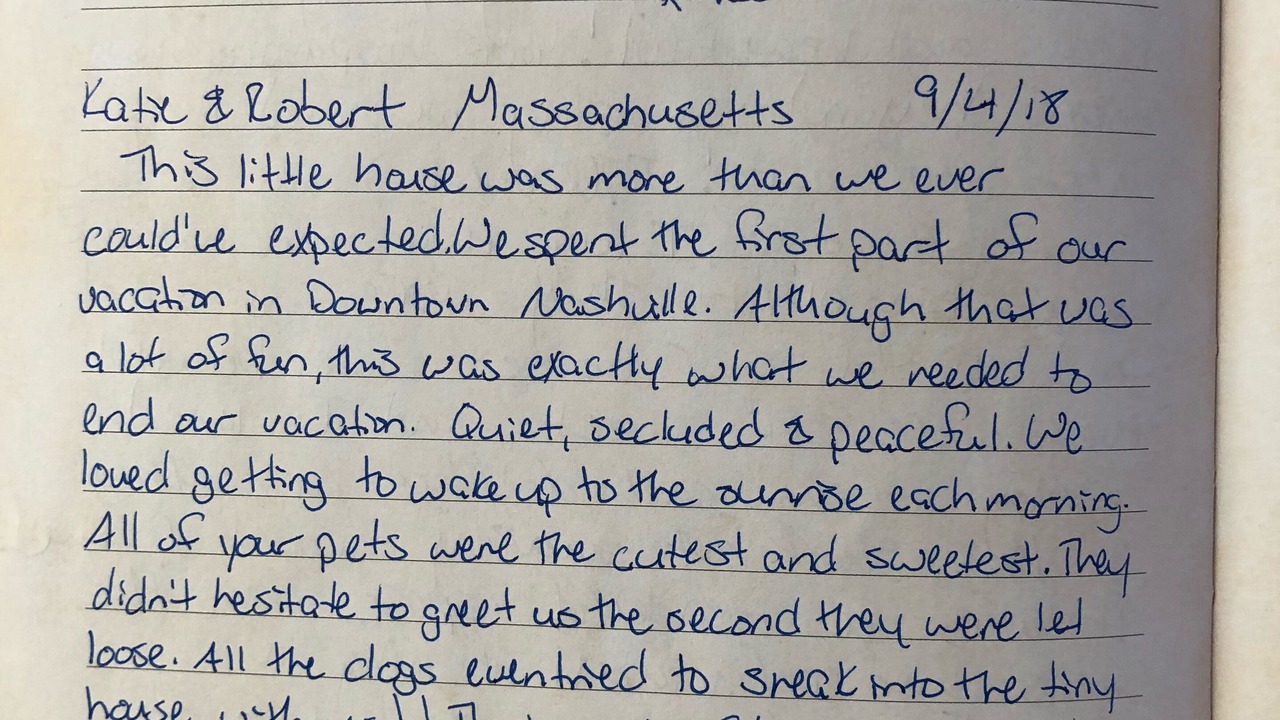 Katie & Robert Massachusetts 9/4/18
This little house was more than we ever
could've expected. We spent the first part of our
vacation in Downtown Nashville. Although that was
a lot of fun, this was exactly what we needed to
end our vacation. Quiet, secluded & peaceful. We
loved getting to wake up to the sunrise each morning.
All of your pets were the cutest and sweetest. They
didn't hesitate to greet us the second they were let
loose. All the dogs even tried to sneak into the tiny
house